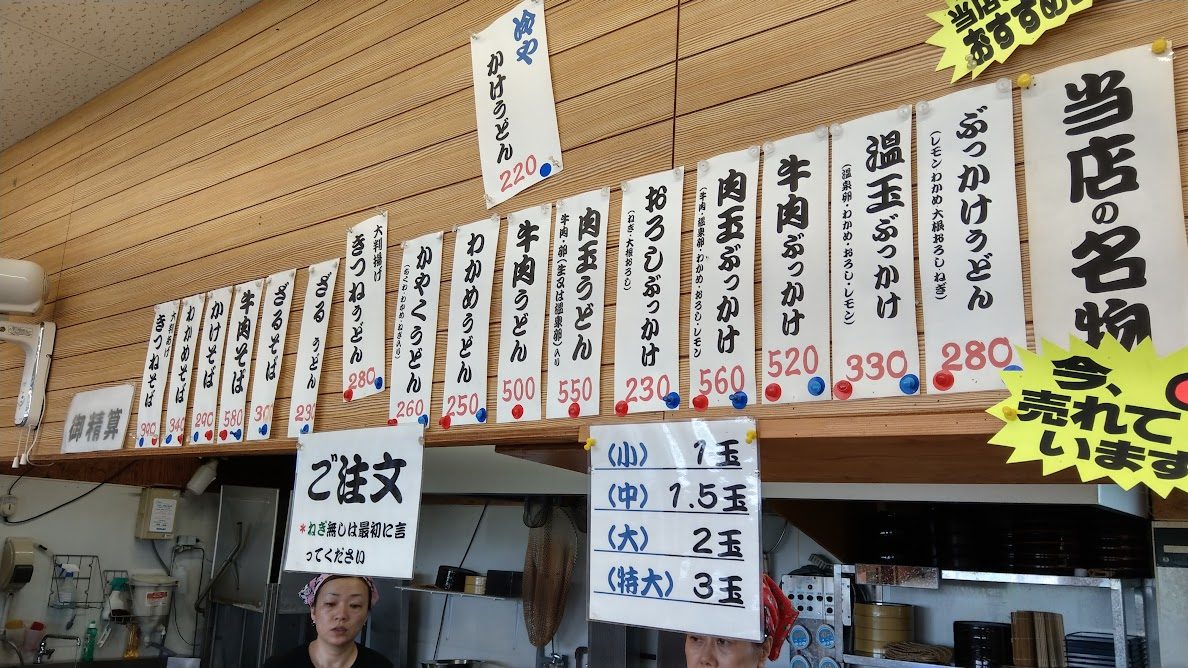 当店
おすすめ
当店の名物
今、
売れて
います
ぶっかけうどん
(レモンわかめ大根おろしねぎ)
280
温玉ぶっかけ
(温泉卵・わかめ・おろし・レモン)
330
牛肉ぶっかけ
520
肉玉ぶっかけ
(牛肉・温泉卵・わかめ・おろし・レモン)
560
おろしぶっかけ
(ねぎ・大根おろし)
230
肉玉うどん
牛肉・卵(生又は温泉卵)入り
550
牛肉うどん
500
冷や
かけうどん
220
わかめうどん
250
かやくうどん
(ちくわ・わかめ・ねぎ入り)
260
大判揚げ
きつねうどん
280
ざるうどん
230
ざるそば
牛肉そば
580
かけそば
290
わかめそば
340
大判あげ
きつねそば
390
御精算
ご注文
*ねぎ無しは最初に言
ってください
(小) 1玉
(中) 1.5玉
(大) 2玉
(特大) 3玉